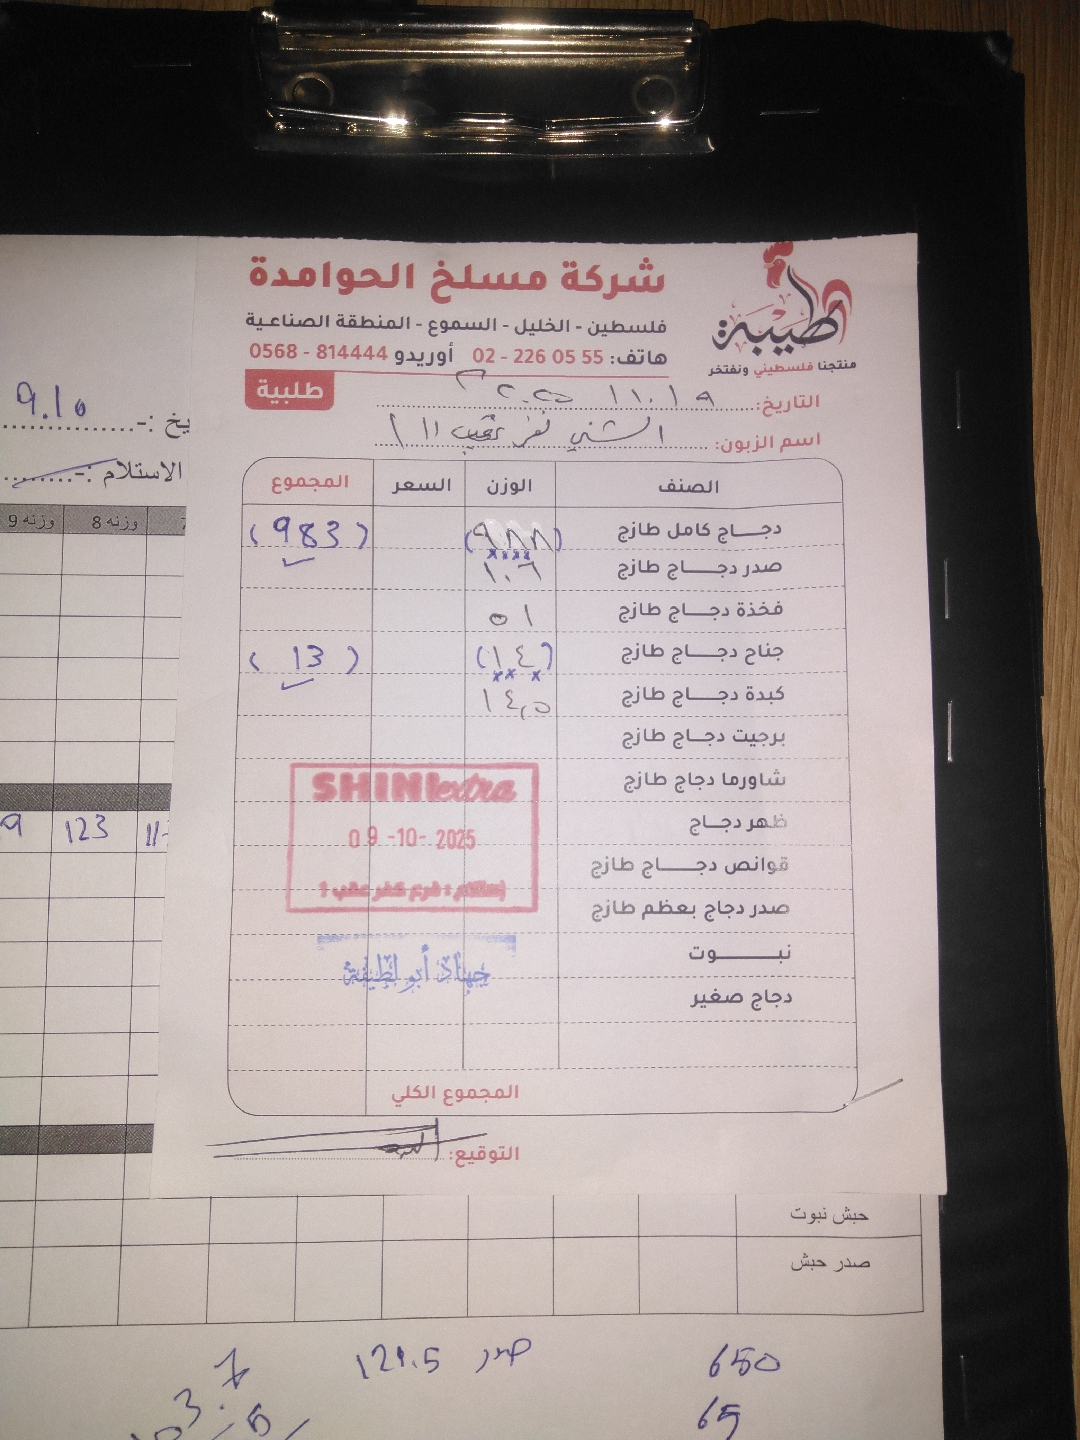 شركة مسلخ الحوامدة
فلسطين - الخليل - السموع - المنطقة الصناعية
هاتف: 55 05 226 - 02 أوريدو 814444 - 0568
طيبة
منتجنا فلسطيني ونفتخر
طلبية
التاريخ:
اسم الزبون: الشني
الصنف الوزن السعر المجموع
دجاج كامل طازج (٩٨٨) (983)
صدر دجاج طازج ١٠٦
فخذة دجاج طازج ٥١
جناح دجاج طازج (١٤) (13)
كبدة دجاج طازج ١٤,٥
برجيت دجاج طازج
شاورما دجاج طازج
ظهر دجاج
قوانص دجاج طازج
صدر دجاج بعظم طازج
نبوت
دجاج صغير
المجموع الكلي
التوقيع:
SHINI extra
09-10-2025
إستلام : فرع كفر عقب 1
جهاد أبو لطيفة
9.10
يخ :-
الاستلام :-
وزنه 8 وزنه 9
123 9
حبش نبوت
صدر حبش
650
صدر 121.5
65